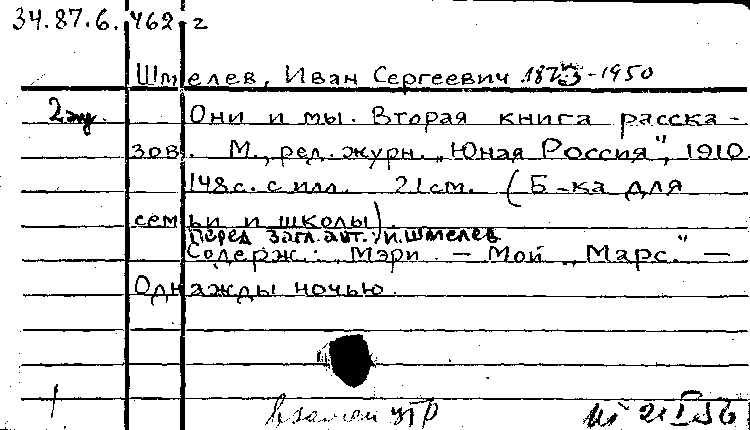 34.87.6.462 г
Шмелев, Иван Сергеевич 1873-1950
2 экз. Они и мы. Вторая книга расска-
зов. М., ред. журн. „Юная Россия", 1910
148с. с илл. 21см. (Б-ка для
семьи и школы).
Перед загл. авт.: И. Шмелев
Содерж.: Мэри. — Мой „Марс." —
Однажды ночью.
взамен утр